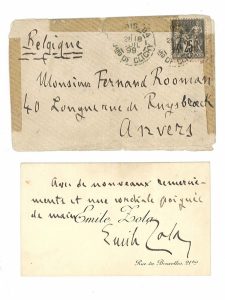 Belgique
PARIS
Bd DE CLICHY
25
Monsieur Fernand Rooman
40 Longue rue de Ruysbroeck
Anvers
Avec de nouveaux remercie-
ments et une cordiale poignée
de main
Emile Zola
Emile Zola
Rue de Bruxelles, 21bis